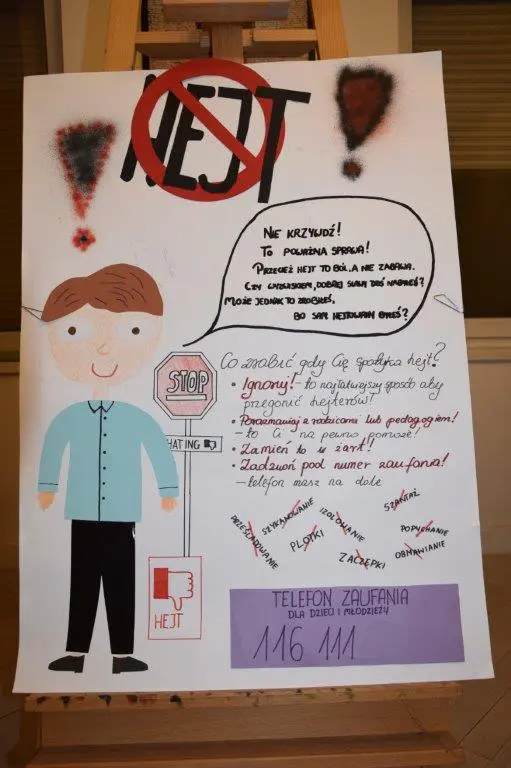 HEJT
NIE KRZYWDŹ!
TO POWAŻNA SPRAWA!
PRZECIEŻ HEJT TO BÓL, A NIE ZABAWA.
CZY WYZWISKIEM, DOBREJ SŁAWY DOŚ NABYŁEŚ?
MOŻE JEDNAK TO ZROBIŁEŚ,
BO SAM HEJTOWANY BYŁEŚ?
Co zrobić gdy Cię spotyka hejt?
• Ignoruj! - to najłatwiejszy sposób aby
przegonić hejterów!
• Porozmawiaj z rodzicami lub pedagogiem!
- to Ci na pewno pomoże!
• Zamień to w żart!
• Zadzwoń pod numer zaufania!
- telefon masz na dole
STOP
HATING
PRZEŚLADOWANIE
SZYKANOWANIE
PLOTKI
IZOLOWANIE
ZACZEPKI
SZANTAŻ
POPYCHANIE
OBMAWIANIE
HEJT
TELEFON ZAUFANIA
DLA DZIECI I MŁODZIEŻY
116 111